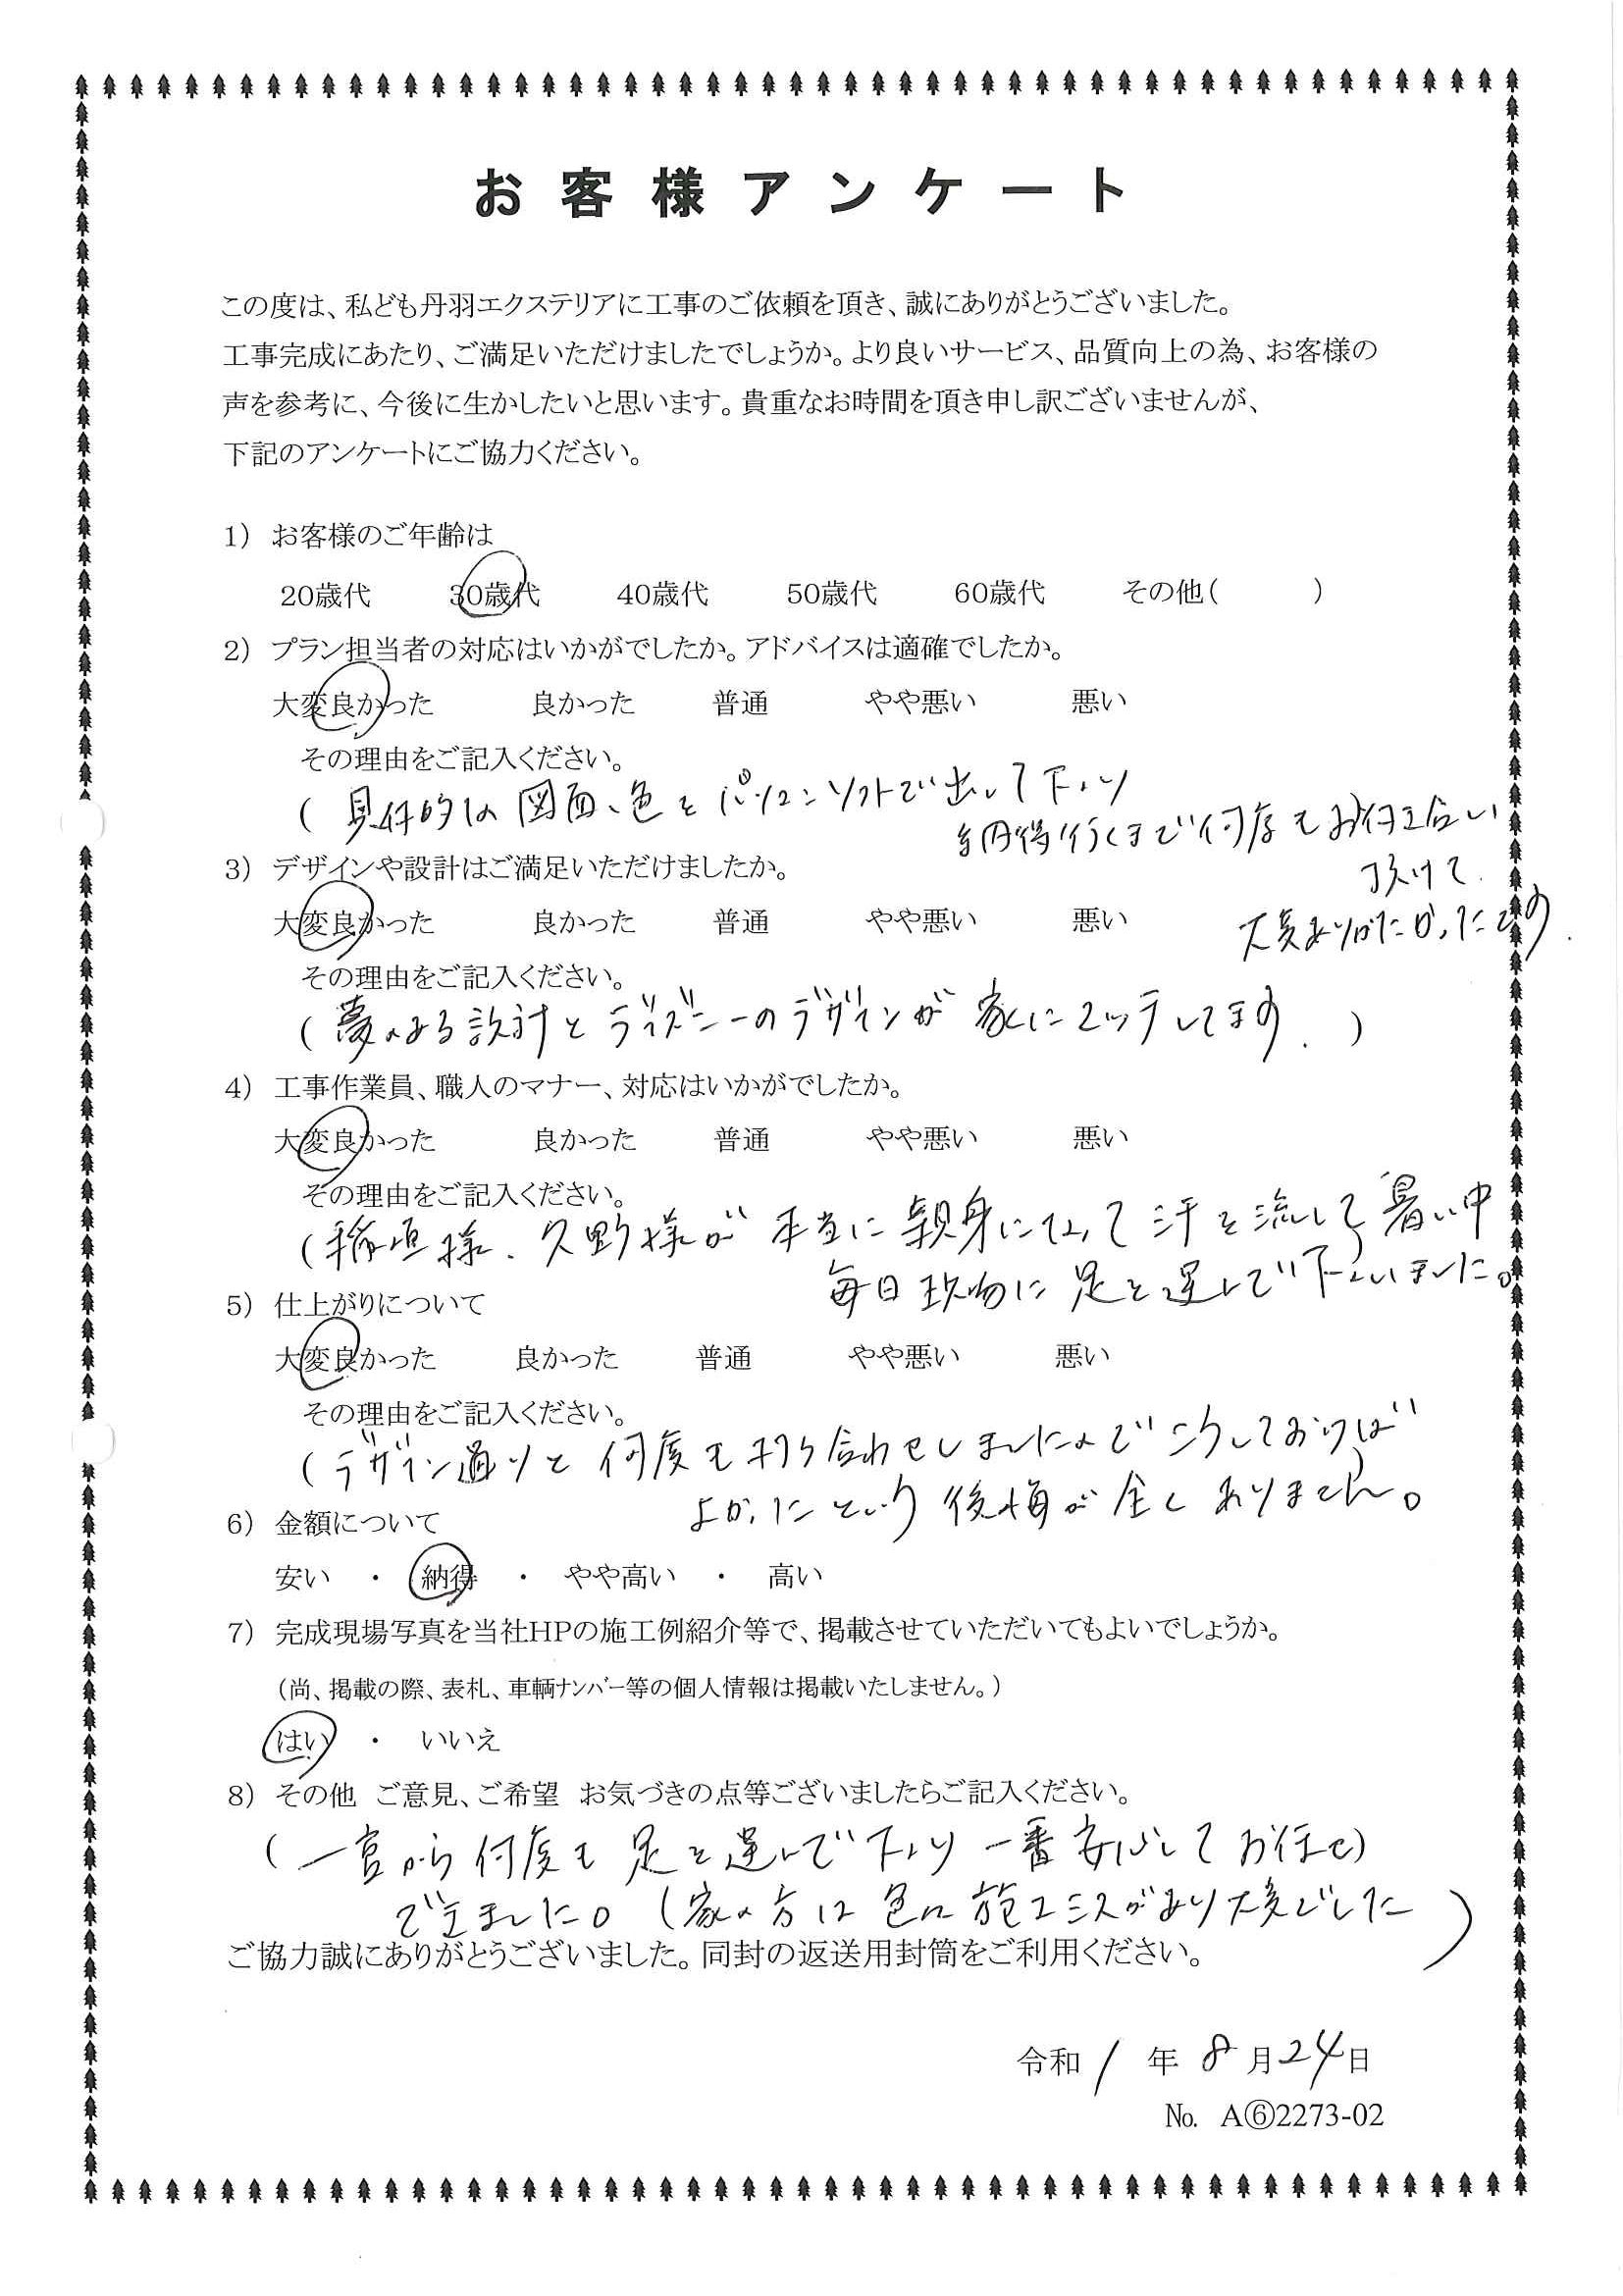 お客様アンケート
この度は、私ども丹羽エクステリアに工事のご依頼を頂き、誠にありがとうございました。
工事完成にあたり、ご満足いただけましたでしょうか。より良いサービス、品質向上の為、お客様の
声を参考に、今後に生かしたいと思います。貴重なお時間を頂き申し訳ございませんが、
下記のアンケートにご協力ください。
1) お客様のご年齢は
20歳代 30歳代 40歳代 50歳代 60歳代 その他( )
2) プラン担当者の対応はいかがでしたか。アドバイスは適確でしたか。
大変良かった 良かった 普通 やや悪い 悪い
その理由をご記入ください。
(具体的な図面、色をパソコンソフトで出して下さり
納得行くまで何度もお付き合い
頂けて
大変ありがたかったです.
3) デザインや設計はご満足いただけましたか。
大変良かった 良かった 普通 やや悪い 悪い
その理由をご記入ください。
(夢のある設計とディズニーのデザインが家にマッチしてます.)
4) 工事作業員、職人のマナー、対応はいかがでしたか。
大変良かった 良かった 普通 やや悪い 悪い
その理由をご記入ください。
(稲垣様、久野様が本当に親身になって汗を流して暑い中
毎日現場に足を運んで下さいました。
5) 仕上がりについて
大変良かった 良かった 普通 やや悪い 悪い
その理由をご記入ください。
(デザイン通りと何度も打ち合わせしましたのでこうしておけば
よかったという後悔が全くありません。
6) 金額について
安い ・ 納得 ・ やや高い ・ 高い
7) 完成現場写真を当社HPの施工例紹介等で、掲載させていただいてもよいでしょうか。
(尚、掲載の際、表札、車輌ナンバー等の個人情報は掲載いたしません。)
はい ・ いいえ
8) その他 ご意見、ご希望 お気づきの点等ございましたらご記入ください。
(一宮から何度も足を運んで下さり一番安心してお任せ
できました。(家の方は色々施工ミスがあり大変でした)
ご協力誠にありがとうございました。同封の返送用封筒をご利用ください。
令和 1 年 8 月 24 日
No. A⑥2273-02